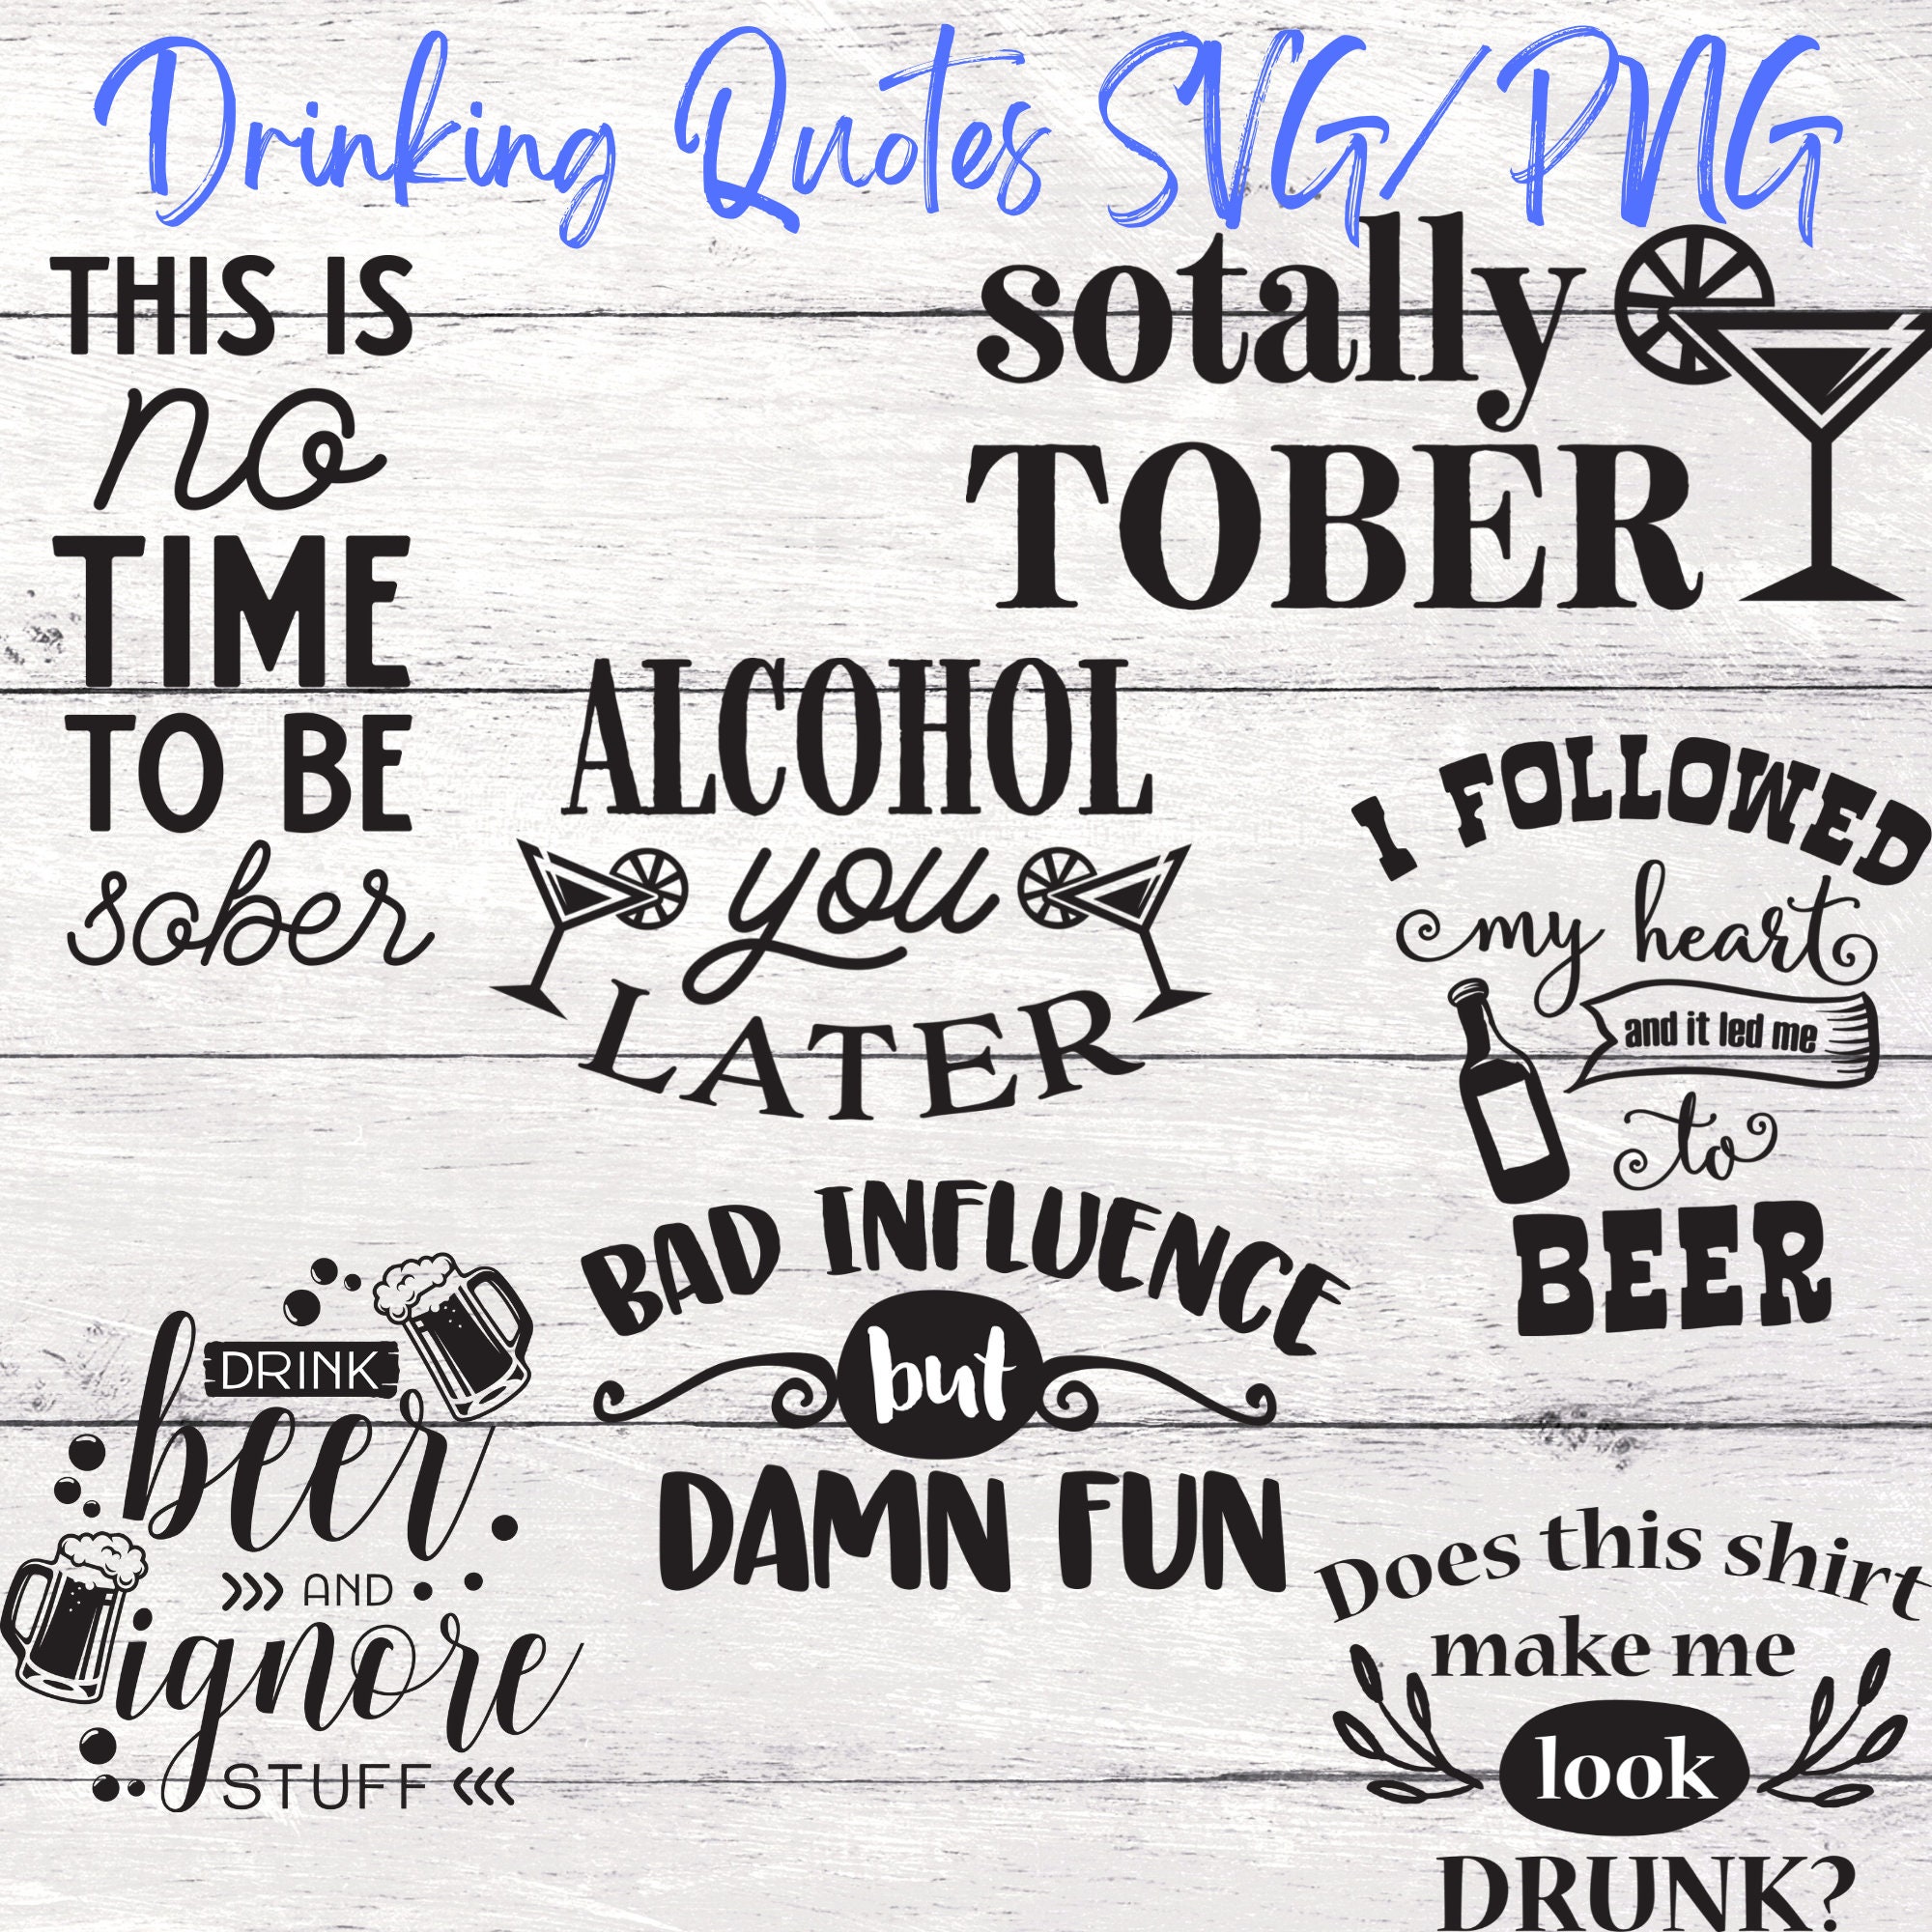 Drinking Quotes SVG/PNG
THIS IS
no
TIME
TO BE
sober
sotally
TOBER
ALCOHOL
you
LATER
I FOLLOWED
my heart
and it led me
to
BEER
DRINK
beer
AND
ignore
STUFF
BAD INFLUENCE
but
DAMN FUN
Does this shirt
make me
look
DRUNK?